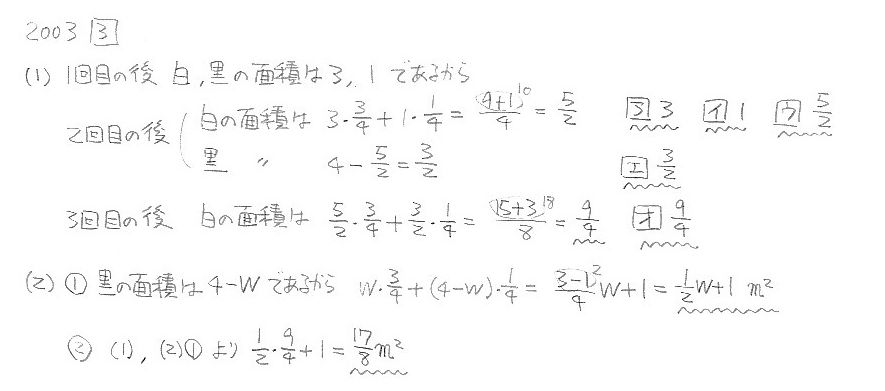 2003 [3]
(1) 1回目の後 白,黒の面積は3, 1であるから
2回目の後 ( 白の面積は 3・3/4+1・1/4= (9+1)10/4 = 5/2 [ア] 3 [イ] 1 [ウ] 5/2
黒 〃 4-5/2=3/2 [エ] 3/2
3回目の後 白の面積は 5/2・3/4+3/2・1/4= (15+3)18/8 = 9/4 [オ] 9/4
(2) ① 黒の面積は4-Wであるから W・3/4+(4-W)・1/4= (3-1)2/4 W+1= 1/2 W+1 m²
② (1), (2)①より 1/2・9/4+1= 17/8 m²